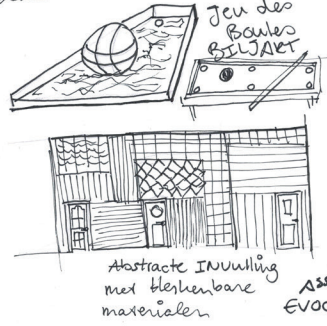 Jeu des
Boules
BILJART
Abstracte INVulling
met herkenbare
materialen